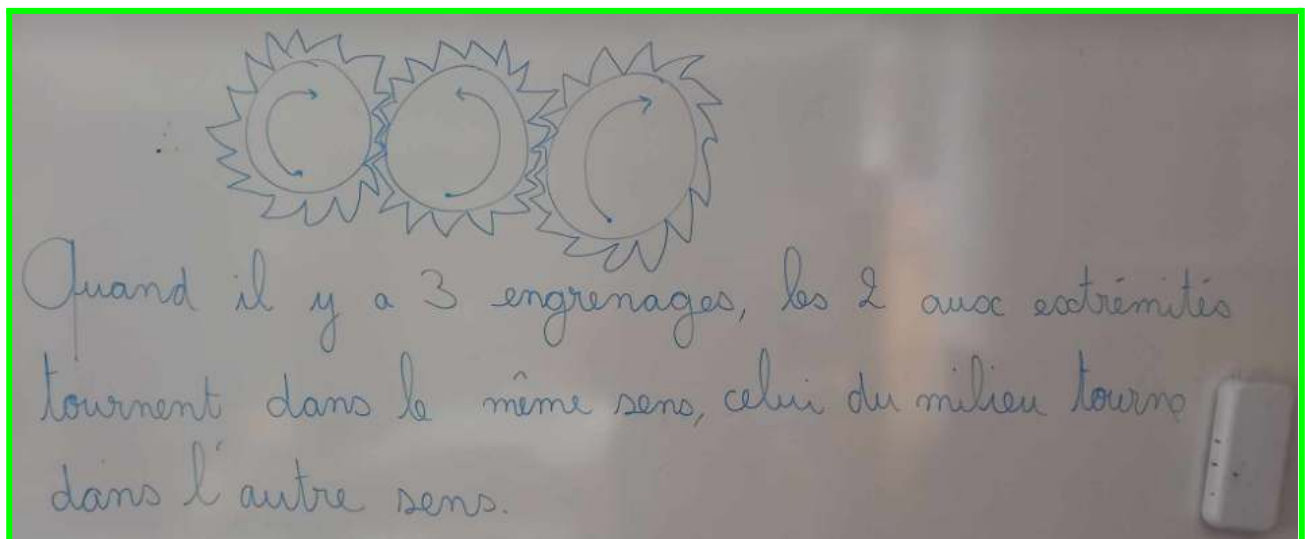 Quand il y a 3 engrenages, les 2 aux extrémités
tournent dans le même sens, celui du milieu tourne
dans l'autre sens.